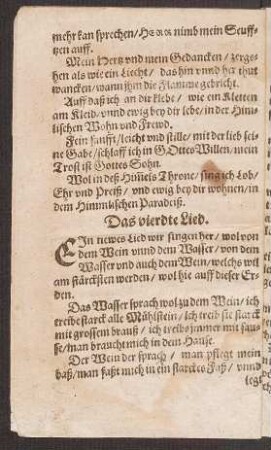 mehr kan sprechen / HErr nimb mein Seuff-
tzen auff.
Mein Hertz vnd mein Gedancken / zerge-
hen als wie ein Liecht / das hin vnnd her thut
wancken / wann jhm die Flamme gebricht.
Auff daß ich an dir klebe / wie ein Kletten
am Kleid / vnnd ewig bey dir lebe / in der Him-
lischen Wohn vnd Frewd.
Fein sanfft / leicht vnd stille / mit der lieb sei-
ne Gabe / schlaff ich in GOttes Willen, mein
Trost ist Gottes Sohn.
Wol in deß Himels Throne / sing ich Lob /
Ehr vnd Preiß / vnd ewig bey dir wohnen / in
dem Himmlischen Paradeiß.
Das vierdte Lied.
EIn newes Lied wir singen her / wol von
dem Wein vnnd dem Wasser / von dem
Wasser vnd auch dem Wein / welchs wil
am stärcksten werden / wol hie auff dieser Er-
den.
Das Wasser sprach wol zu dem Wein / ich
treibe starck alle Mühlstein / ich treib sie starck
mit grossem brauß / ich treib s jmmer mit sau-
se / man braucht mich in dem Hause.
Der Wein der sprach / man pflegt mein
baß / man faßt mich in ein starckes Faß / vnnd
legt